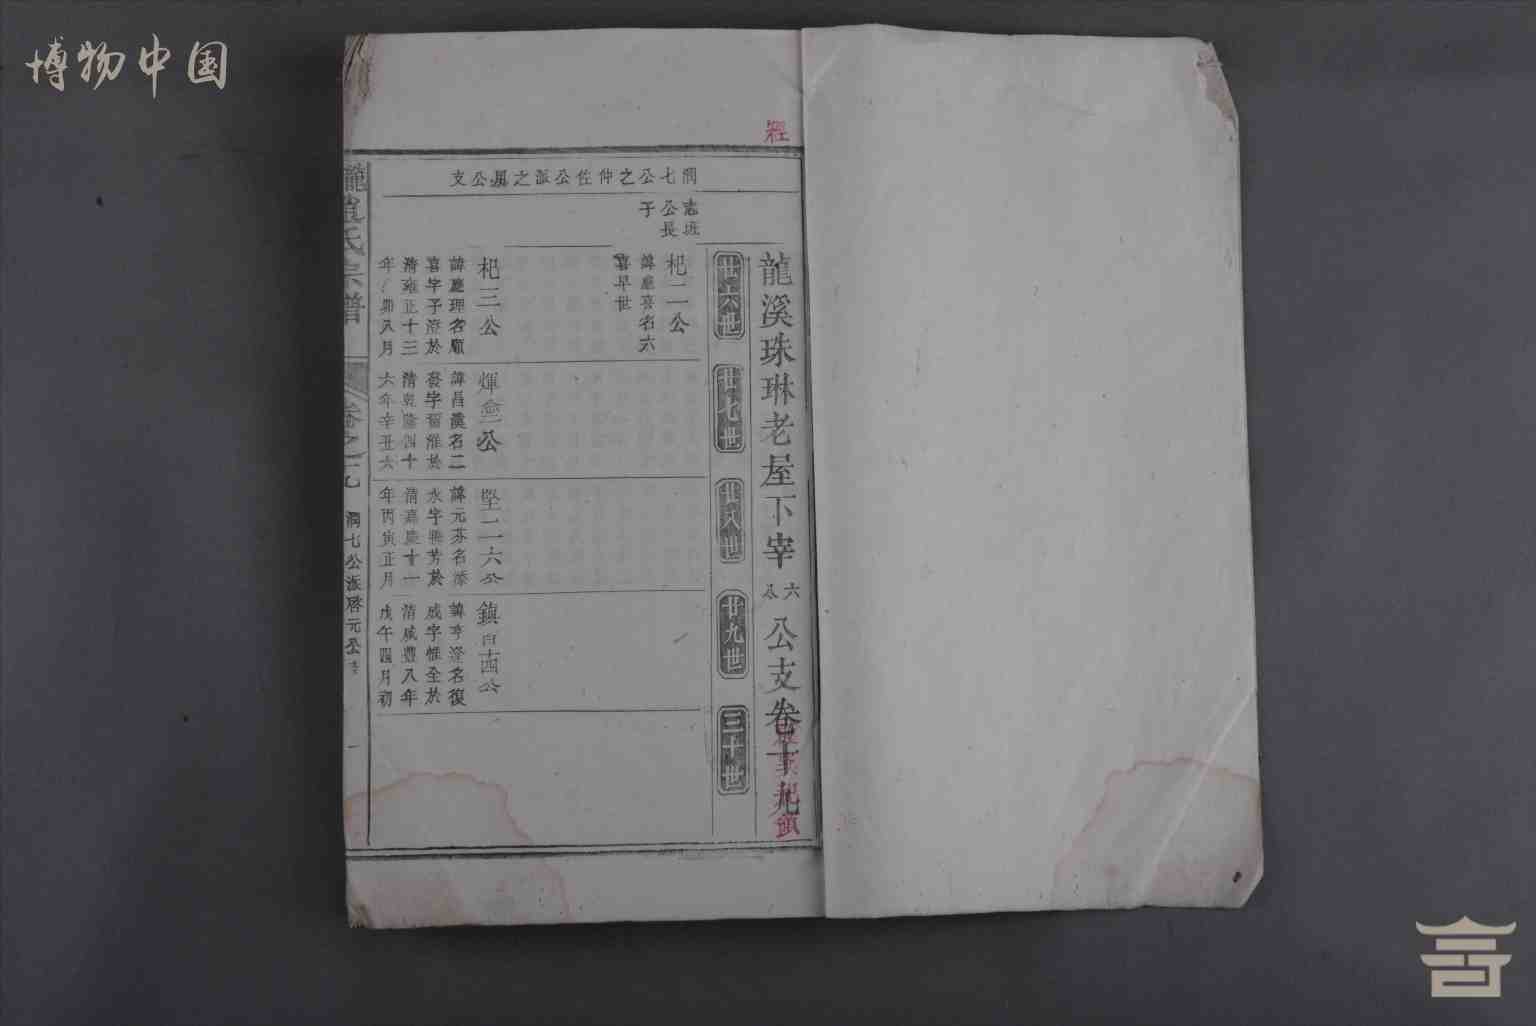 博物中国
經
龍溪珠琳老屋下宰六公支卷十九
廿六世
廿七世
廿八世
廿九世
三十世
潤七公之仲佐公派之公支
志班
公長
子
杞二公
諱應喜名六
喜早世
杞三公
諱應理名顺
喜字子澄於
清雍正十三
年卯八月
煇公
諱昌漢名二
發字淮於
清乾隆四十
六年辛丑六
堅二六公
諱元芬名添
永字芳於
清嘉慶十一
年丙寅正月
鎮百十四公
諱亨澄名復
成字惟全於
清咸豐八年
戊午四月初
氏宗譜
卷之十九
潤七公派啓元公支
一